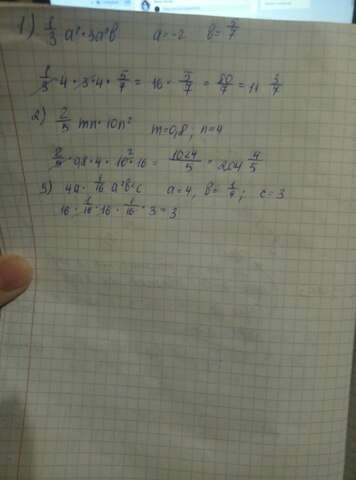 1) 1/3 a² · 3a²b   a=-2   b=5/7
1/3 · 4 · 3 · 4 · 5/7 = 16 · 5/7 = 80/7 = 11 3/7
2) 2/5 mn · 10n²   m=0,8; n=4
2/5 · 0,8 · 4 · 10² · 16 = 1024/5 = 204 4/5
3) 4a · 1/16 a²b²c   a=4, b=1/4; c=3
16 · 1/16 · 16 · 1/16 · 3 = 3